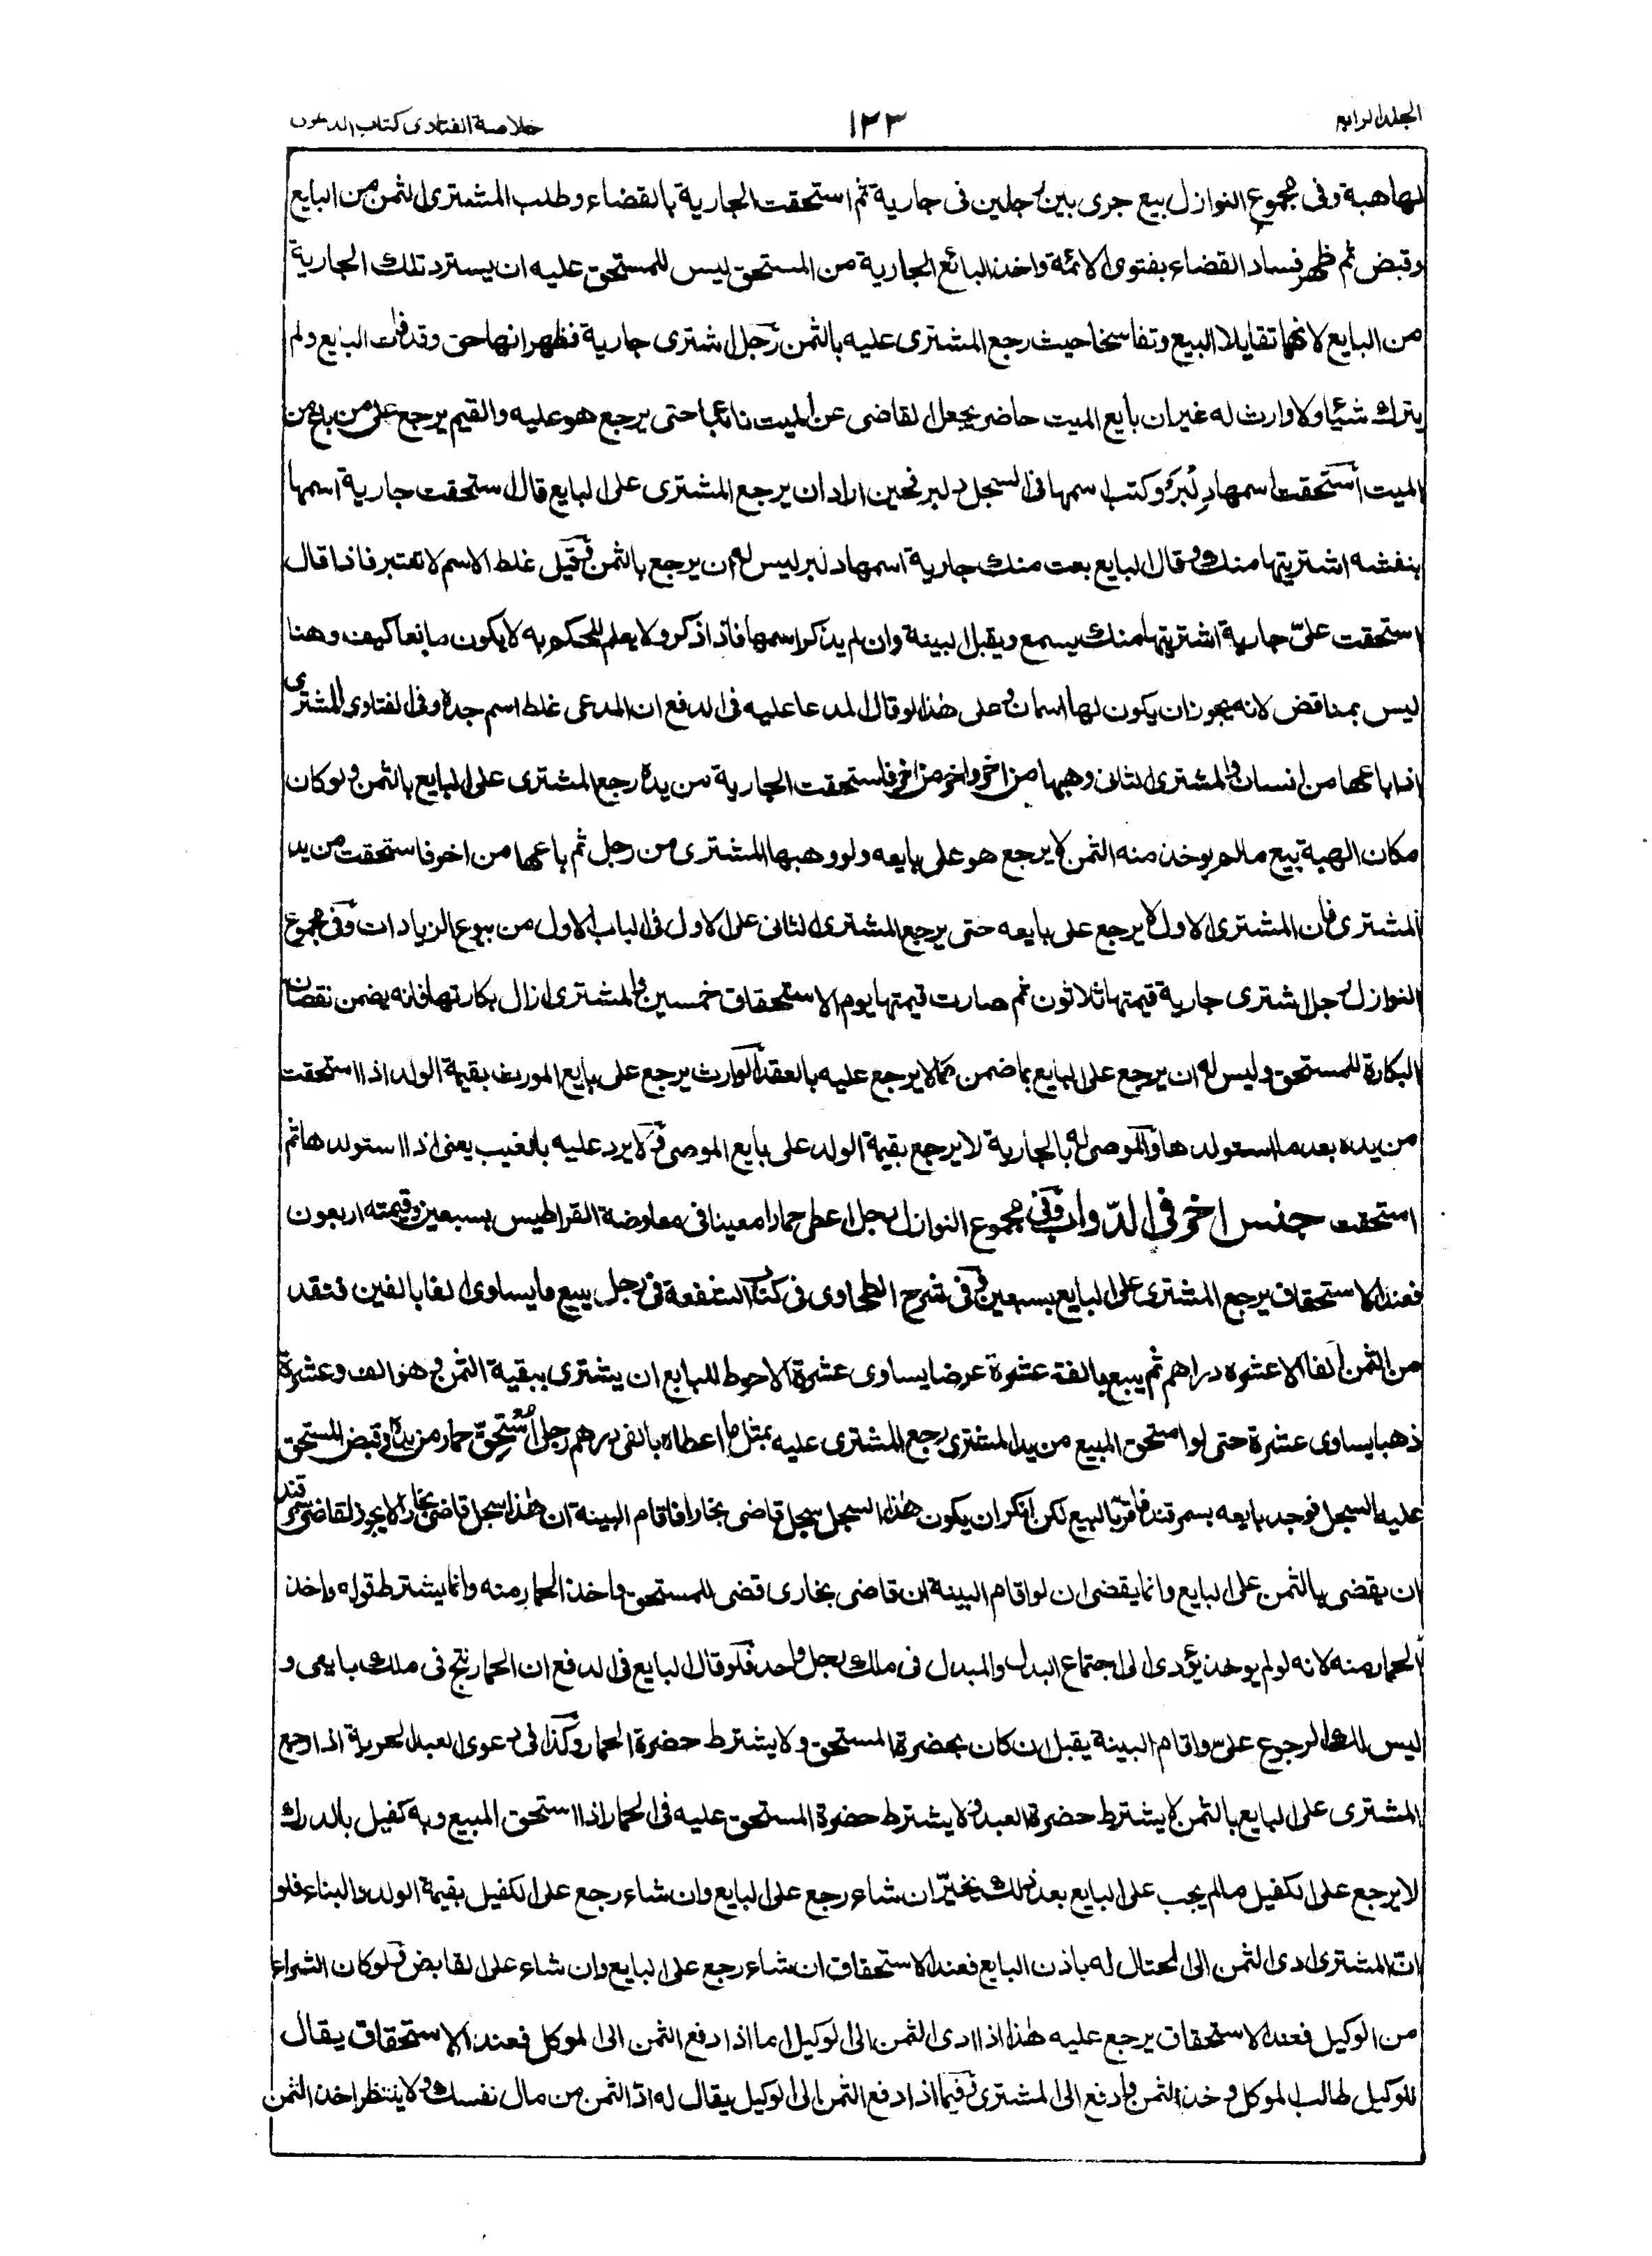 الجلد الرابع
١٢٣
خلاصة الفتاوى كتاب الدعوى
لها هبة وفى مجموع النوازل بيع جرى بين رجلين فى جارية ثم استحقت الجارية بالقضاء وطلب المشترى الثمن من البايع
وقبض ثم ظهر فساد القضاء بفتوى الائمة واخذ البائع الجارية من المستحق ليس للمستحق عليه ان يسترد تلك الجارية
من البايع لانهما تقايلا البيع وتفاسخا حيث رجع المشترى عليه بالثمن رجل اشترى جارية فظهر انها حق وقد مات البايع ولم
يترك شيئا ولا وارث له غير ان بايع الميت حاضر يجعل القاضى عن الميت نائبا حتى يرجع هو عليه والقيم يرجع على من باع من
الميت استحقت اسمها دلبر وكتب اسمها فى السجل دلبر فحين اراد ان يرجع المشترى على البايع قال استحقت جارية اسمها
بنفشه اشتريتها منك وقال البايع بعت منك جارية اسمها دلبر ليس له ان يرجع بالثمن وقيل غلط الاسم لا تعتبر فاذا قال
استحقت علىّ جارية اشتريتها منك يسمع ويقبل البينة وان لم يذكر اسمها فاذا ذكر ولا يعلم للحكم به لا يكون مانعا كيف وهنا
ليس بمناقض لانه يجوز ان يكون لها اسمان وعلى هذا لو قال المدعا عليه فى الدفع ان المدعى غلط اسم جده وفى الفتاوى المشترى
اذا باعها من انسان والمشترى الثانى وهبها من اخر واخر من اخر فاستحقت الجارية من يده رجع المشترى على البايع بالثمن ولو كان
مكان الهبة بيع مالم يوخذ منه الثمن لا يرجع هو على بايعه ولو وهبها المشترى من رجل ثم باعها من اخر فاستحقت من يد
المشترى فان المشترى الاول لا يرجع على بايعه حتى يرجع المشترى الثانى على الاول فى الباب الاول من بيوع الزيادات وفى مجموع
النوازل رجل اشترى جارية قيمتها ثلاثون ثم صارت قيمتها يوم الاستحقاق خمسين والمشترى ازال بكارتها فانه يضمن نقصان
البكارة للمستحق وليس له ان يرجع على البايع بما ضمن كما لا يرجع عليه بالعقد الوارث يرجع على بايع المورث بقيمة الولد اذا استحقت
من يده بعد ما استولدها والموصى له بالجارية لا يرجع بقيمة الولد على بايع الموصى ولا يرد عليه بالعيب يعنى اذا استولدها ثم
استحقت جنس اخر فى الدّواب وفى مجموع النوازل رجل اعطى حمارا معينا فى معاوضة القراطيس بسبعين وقيمته اربعون
فعند الاستحقاق يرجع المشترى على البايع بسبعين وفى شرح الطحاوى فى كتاب الشفعة فى رجل يبيع ما يساوى الفا بالفين فنقد
من الثمن الفا الا عشره دراهم ثم يبيع بالفة عشرة عرضا يساوى عشرة الاحوط للبايع ان يشترى ببقية الثمن وهو الف وعشرة
ذهبا يساوى عشرة حتى لو استحق المبيع من يد المشترى رجع المشترى عليه بمثل ما اعطاه بالفى درهم رجل استحقّ حمار من يده وقبض المستحق
عليه السجل فوجد بايعه بسمرقند فاقر بالبيع لكن انكر ان يكون هذا السجل سجل قاضى بخارا فاقام البينة ان هذا سجل قاضى بخارا لا يجوز لقاضى سمرقند
ان يقضى بالثمن على البايع وانما يقضى ان لو اقام البينة ان قاضى بخارى قضى للمستحق واخذ الحمار منه وانما يشترط قوله واخذ
الحمار منه لانه لو لم يوخذ يؤدى الى اجتماع البدل والمبدل فى ملك رجل واحد فلو قال البايع فى الدفع ان الحمار نتج فى ملك بايعى و
ليس لك الرجوع علىّ واقام البينة يقبل ان كان بحضرة المستحق ولا يشترط حضرة الحمار وكذا فى دعوى العبد الحرية اذا رجع
المشترى على البايع بالثمن لا يشترط حضرة العبد ولا يشترط حضرة المستحق عليه فى الحمار اذا استحق المبيع وبه كفيل بالدرك
لا يرجع على الكفيل مالم يجب على البايع بعد ذلك يخيّر ان شاء رجع على البايع وان شاء رجع على الكفيل بقيمة الولد والبناء فلو
انّ المشترى ادى الثمن الى المحتال له باذن البايع فعند الاستحقاق ان شاء رجع على البايع وان شاء على القابض ولو كان الشراء
من الوكيل فعند الاستحقاق يرجع عليه هذا اذا ادى الثمن الى الوكيل اما اذا دفع الثمن الى الموكل فعند الاستحقاق يقال
للوكيل طالب الموكل وخذ الثمن وادفع الى المشترى وفيما اذا دفع الثمن الى الوكيل يقال له ادّ الثمن من مال نفسك ولا ينتظر اخذ الثمن